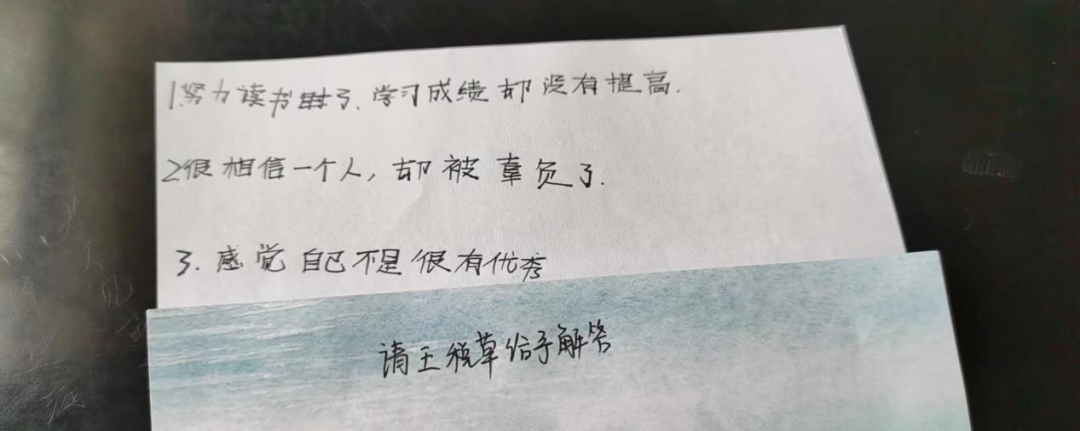 1努力读书时了.学习成绩却没有提高.
2很相信一个人,却被辜负了.
3.感觉自己不是很有优秀
请王税草给予解答